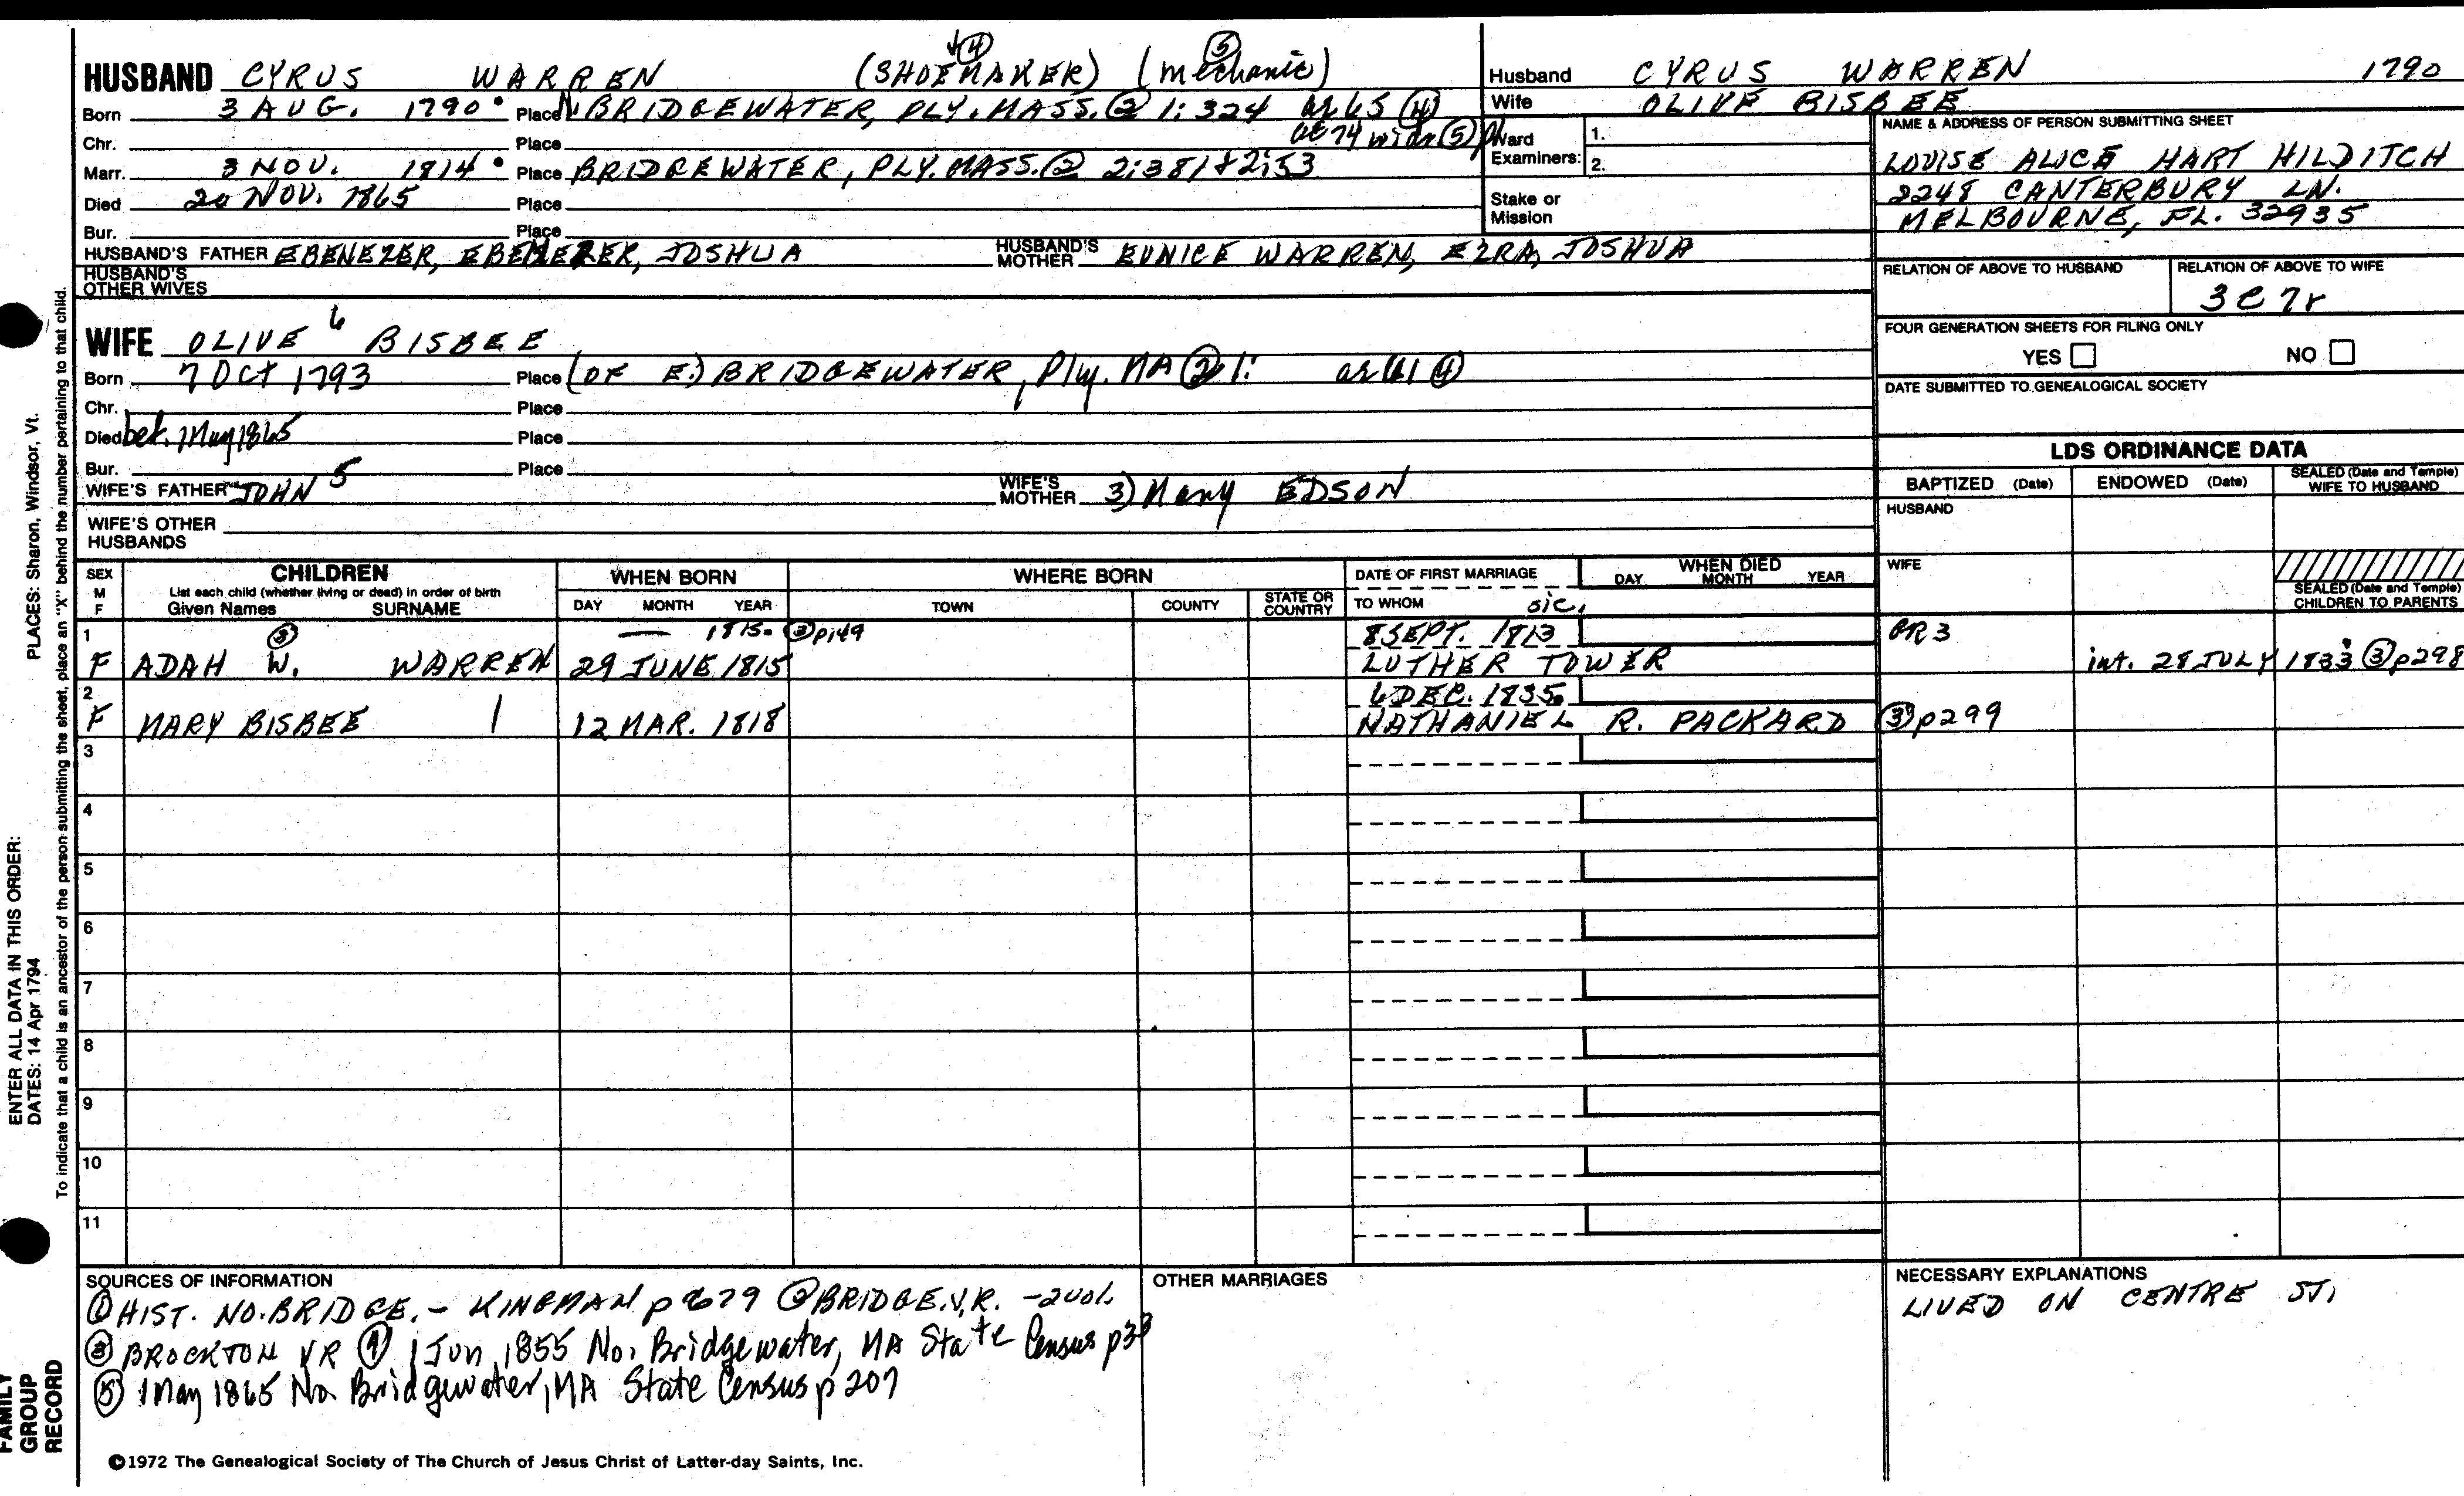 ↓④ ⑤
HUSBAND CYRUS WARREN (SHOEMAKER) (mechanic)
Born 3 AUG. 1790 Place N. BRIDGEWATER, PLY. MASS. ② 1:324 ae 65 ④
Chr. Place ae 74 widr ⑤
Marr. 3 NOV. 1814 Place BRIDGEWATER, PLY. MASS. ② 2:381 & 2:53
Died 20 NOV. 1865 Place
Bur. Place
HUSBAND'S FATHER EBENEZER, EBENEZER, JOSHUA HUSBAND'S MOTHER EUNICE WARREN, EZRA, JOSHUA
HUSBAND'S OTHER WIVES
WIFE OLIVE 6 BISBEE
Born 7 Oct 1793 Place (OF E.) BRIDGEWATER, Ply. MA ② 1: ae 61 ④
Chr. Place
Died bef. 1 May 1865 Place
Bur. Place
WIFE'S FATHER JOHN 5 WIFE'S MOTHER 3) Mary EDSON
WIFE'S OTHER HUSBANDS
Husband CYRUS WARREN 1790
Wife OLIVE BISBEE
Ward Examiners: 1. 2.
Stake or Mission
NAME & ADDRESS OF PERSON SUBMITTING SHEET
LOUISE ALICE HART HILDITCH
2248 CANTERBURY LN.
MELBOURNE, FL. 32935
RELATION OF ABOVE TO HUSBAND RELATION OF ABOVE TO WIFE
3C7r
FOUR GENERATION SHEETS FOR FILING ONLY
YES NO
DATE SUBMITTED TO GENEALOGICAL SOCIETY
LDS ORDINANCE DATA
BAPTIZED (Date) ENDOWED (Date) SEALED (Date and Temple) WIFE TO HUSBAND
HUSBAND
WIFE
SEALED (Date and Temple) CHILDREN TO PARENTS
SEX M F
CHILDREN
List each child (whether living or dead) in order of birth
Given Names SURNAME
WHEN BORN
DAY MONTH YEAR
WHERE BORN
TOWN COUNTY STATE OR COUNTRY
DATE OF FIRST MARRIAGE
TO WHOM sic.
WHEN DIED
DAY MONTH YEAR
1 ③ — 1815. ③ p149 8 SEPT. 1813 BR 3
F ADAH W. WARREN 29 JUNE 1815 LUTHER TOWER int. 28 JULY 1833 ③ p298
2 6 DEC. 1835
F MARY BISBEE 12 MAR. 1818 NATHANIEL R. PACKARD ③ p299
3
4
5
6
7
8
9
10
11
SOURCES OF INFORMATION
① HIST. NO. BRIDGE. – KINGMAN p 679 ② BRIDGE. V.R. – 2 vol.
③ BROCKTON VR ④ 1 Jun 1855 No. Bridgewater, MA State Census p33
⑤ 1 May 1865 No. Bridgewater, MA State Census p 207
OTHER MARRIAGES
NECESSARY EXPLANATIONS
LIVED ON CENTRE ST.
©1972 The Genealogical Society of The Church of Jesus Christ of Latter-day Saints, Inc.
FAMILY GROUP RECORD
ENTER ALL DATA IN THIS ORDER:
DATES: 14 Apr 1794 PLACES: Sharon, Windsor, Vt.
To indicate that a child is an ancestor of the person submitting the sheet, place an "X" behind the number pertaining to that child.